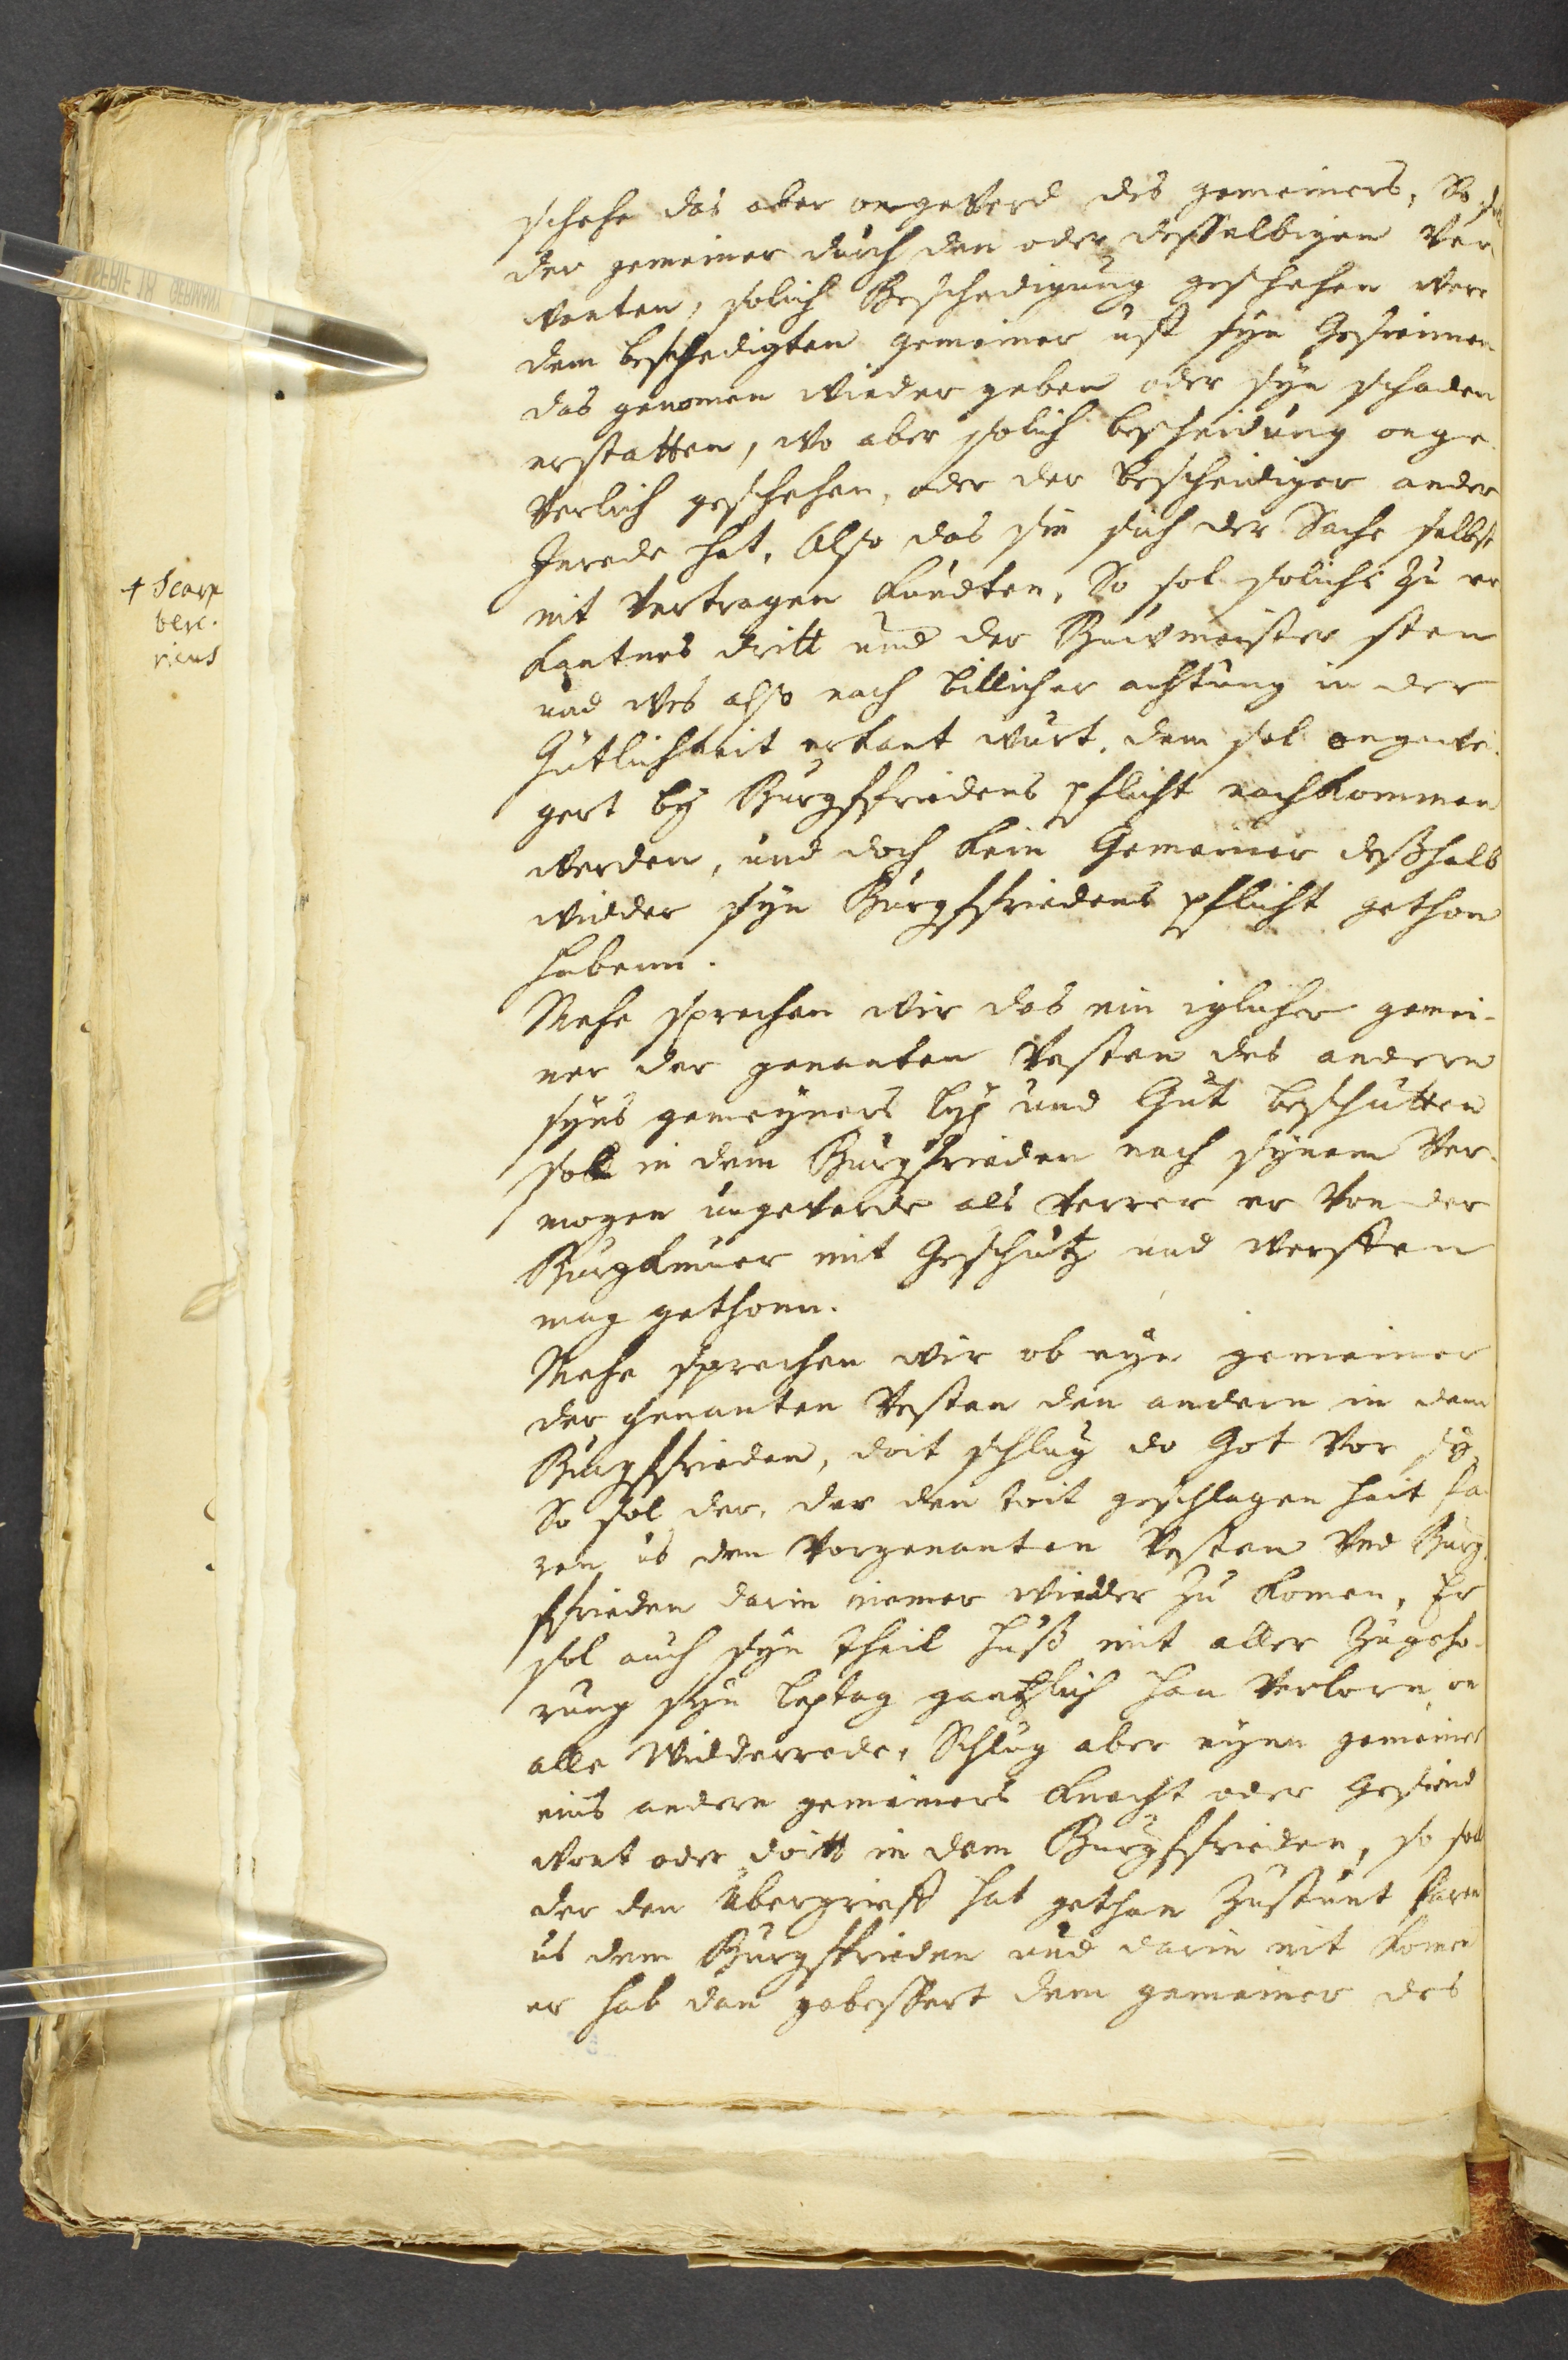 schehe das aber ongeverd des gemeiners, So sol
der gemeiner durch den oder desselbigen Ver-
wanten, solich Beschedigung geschehen were
dem beschedigten gemeiner uff syn Gesinnen
das genomen wieder geben oder syn schaden
erstatten, wo aber solich bescheidung onge-
verlich geschehen, oder der bescheidiger ander
Inrede hat, Also das sie sich der Sache selbst
nit vertragen kundten, So sol solichs zu er
kantnes dritt und der Buwmeister sten
und wes also nach billicher achtung in der
Gütlichkeit erkant wurt, dem sol ongewei-
gert by Burgkfriedens pflicht nachkommen
werden, und doch kein Gemeiner deßhalb
widder syn Burgkfriedens pflicht gethon
habenn.
Mehe sprechen wir das ein iglicher gemei-
ner der genanten Vesten des andern
syns gemeyners lyp und Gut beschutten
soll in dem Burgfrieden nach synem Ver-
mogen ungeverde als verrer er von der
Burgkmuer mit Geschutz und werffen
mag gethonn.
Mehe sprechen wir ob eyn gemeiner
der genanten Vesten den andern in dem
Burgkfrieden, doit schlug do Got vor sy
So sol der, der den toit geschlagen hait fa-
ren us den vorgenanten Vesten und Burg-
kfrieden darin niemer wieder zu komen, Er
sol auch syn theil huß mit aller zugeho-
rung syn leptag gantzlich han verlorn on
alle Widderrede, Schlug aber eynn gemeiner
eins andern gemeiners knecht oder Gesind
wont oder doitt in dem Burgkfrieden, so soll
der den übergrieff hat gethan zustunt faren
us dem Burgkfrieden und darin nit komen
er hab dan gebessert dem gemeiner des